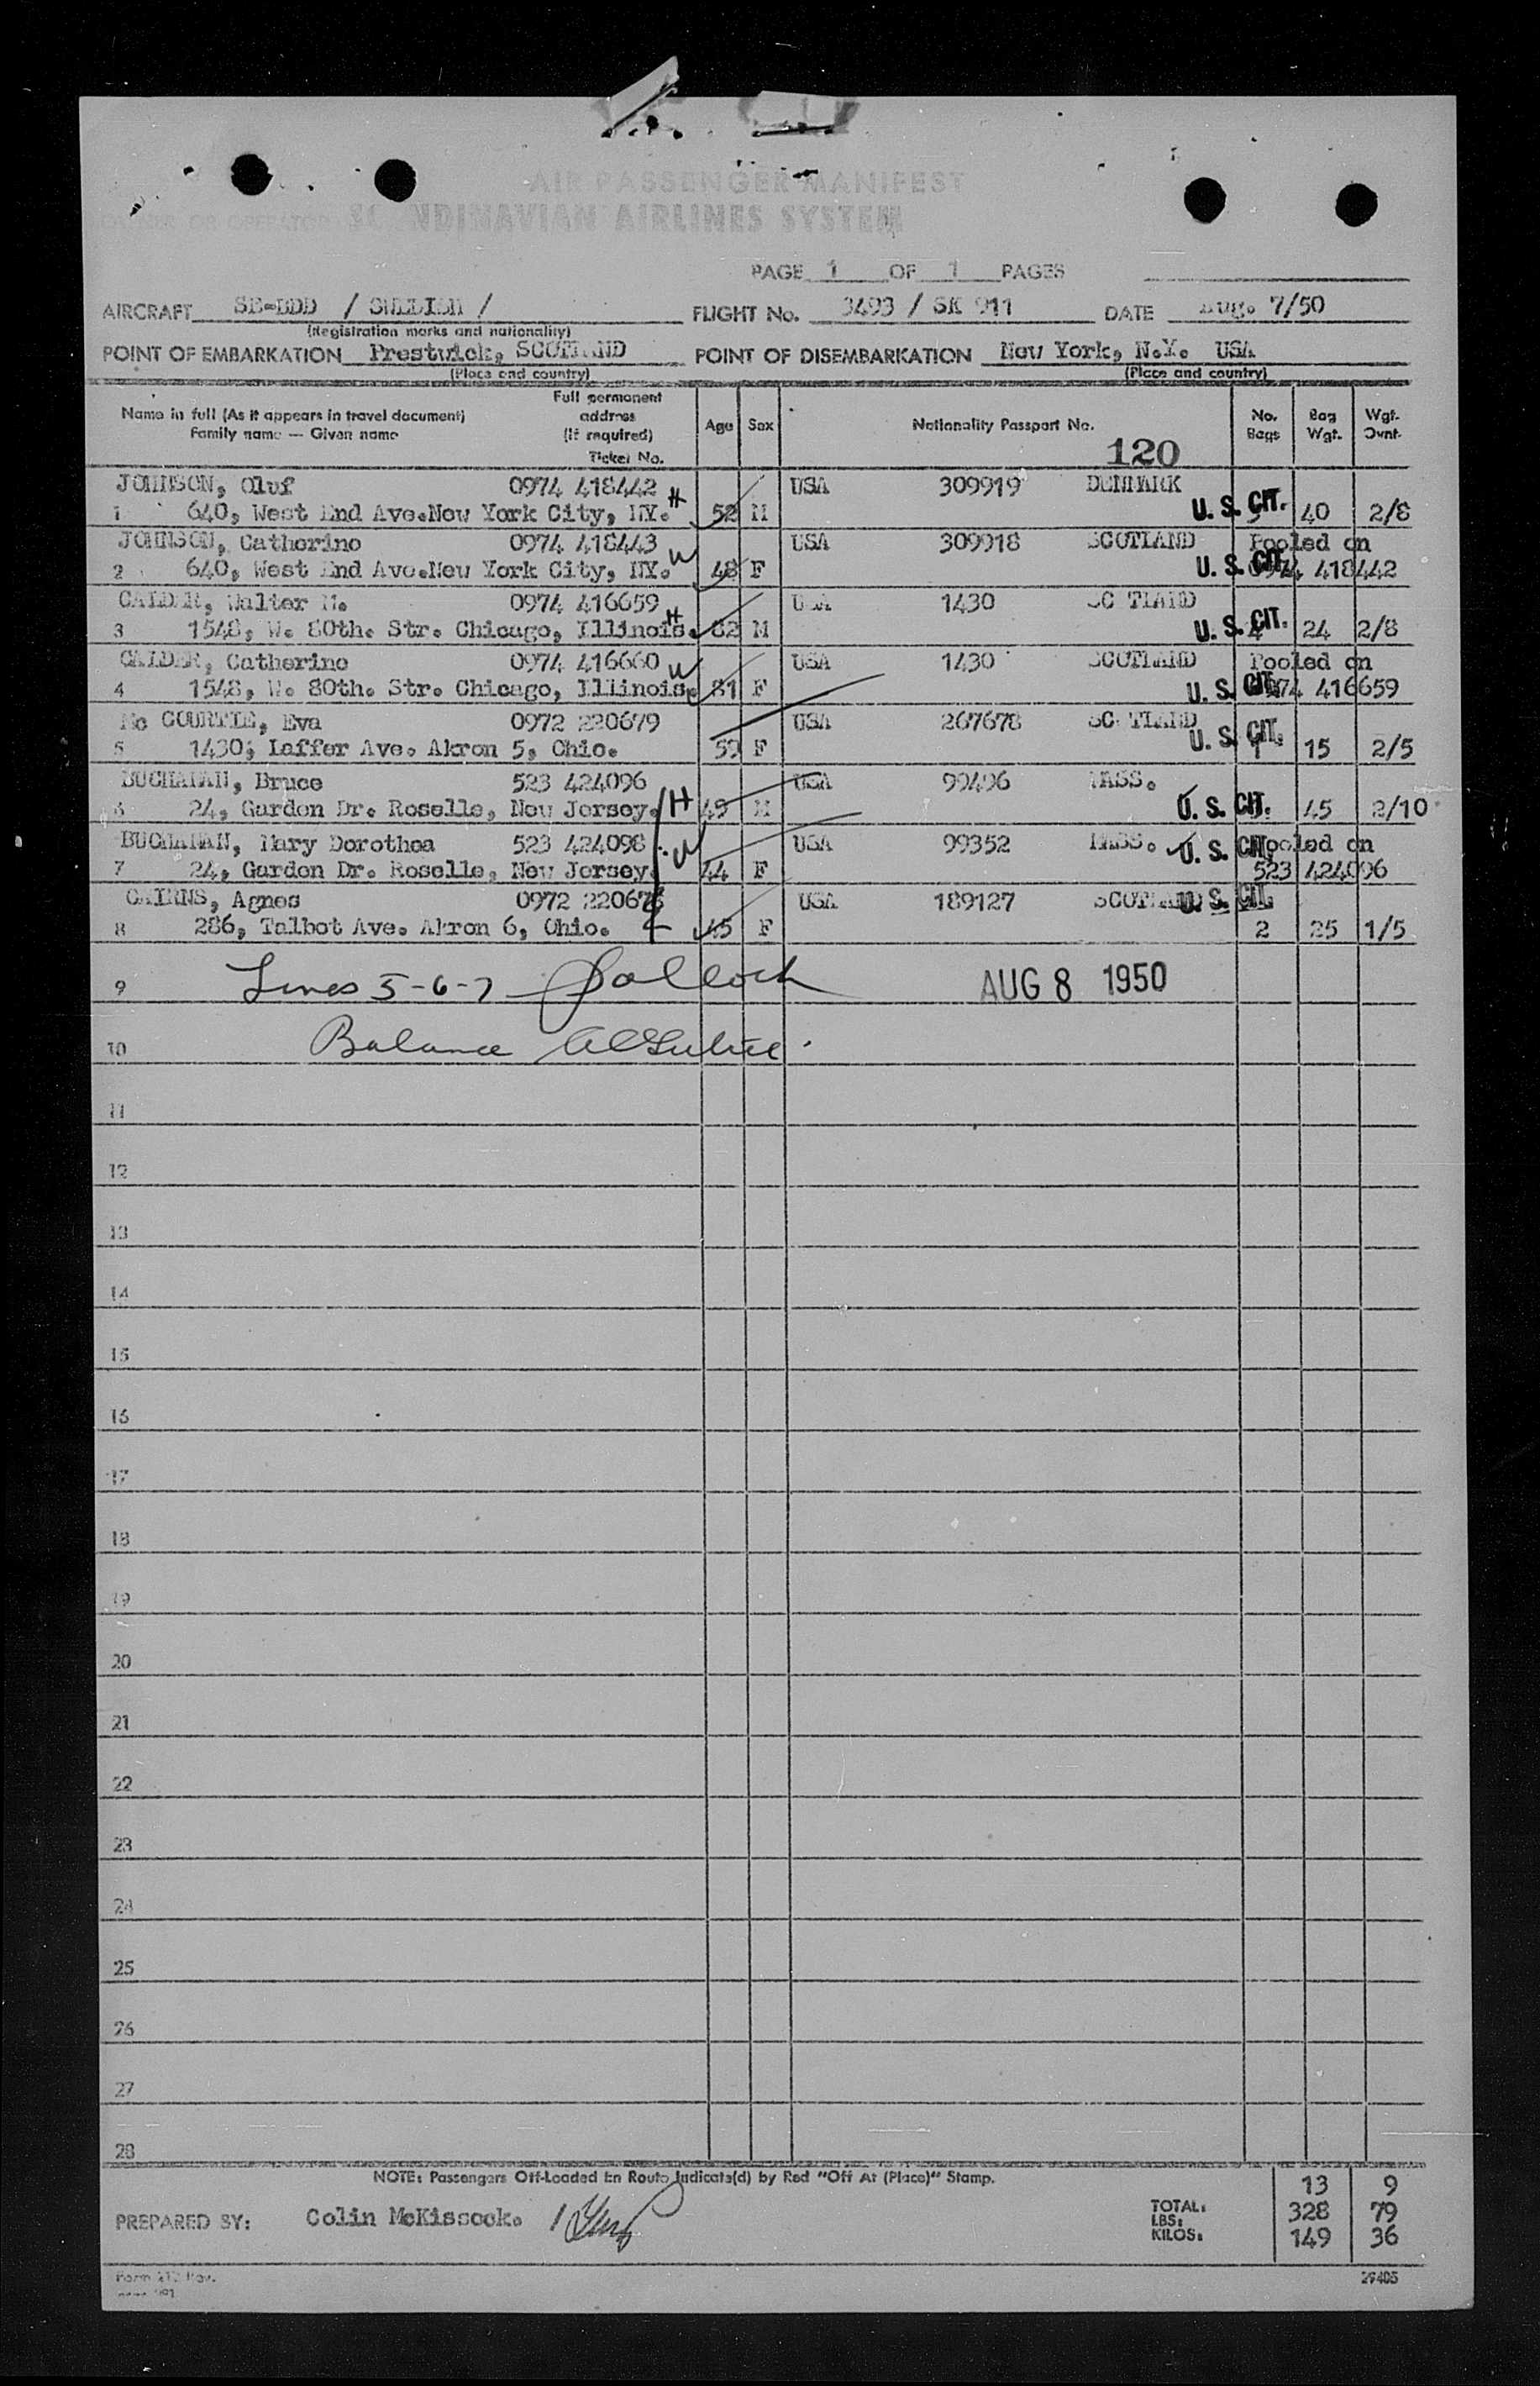 AIR PASSENGER MANIFEST
OWNER OR OPERATOR SCANDINAVIAN AIRLINES SYSTEM
PAGE 1 OF 1 PAGES
AIRCRAFT SE-BDD / SWEDISH / FLIGHT No. 3493 / SK 911 DATE Aug. 7/50
(Registration marks and nationality)
POINT OF EMBARKATION Prestwick, SCOTLAND POINT OF DISEMBARKATION New York, N.Y. USA
(Place and country) (Place and country)
Name in full (As it appears in travel document) Family name — Given name Full permanent address (If required) Ticket No. Age Sex Nationality Passport No. No. Bags Bag Wgt. Wgt. Ovnt.
120
JOHNSON, Oluf 0974 418442 USA 309919 DENMARK
1 640, West End Ave.New York City, NY. H 52 M U. S. CIT. 40 2/8
JOHNSON, Catherine 0974 418443 USA 309918 SCOTLAND Pooled on
2 640, West End Ave.New York City, NY. W 48 F U. S. CIT. 0974 418442
CALDER, Walter M. 0974 416659 USA 1430 SCOTLAND
3 1548, W. 80th. Str. Chicago, Illinois. H 82 M U. S. CIT. 4 24 2/8
CALDER, Catherine 0974 416660 USA 1430 SCOTLAND Pooled on
4 1548, W. 80th. Str. Chicago, Illinois. W 81 F U. S. CIT. 0974 416659
Mc COURTIE, Eva 0972 220679 USA 267678 SCOTLAND U. S. CIT.
5 1430, Laffer Ave. Akron 5, Ohio. 59 F 1 15 2/5
BUCHANAN, Bruce 523 424096 USA 99496 MASS.
6 24, Garden Dr. Roselle, New Jersey. H 49 M U. S. CIT. 45 2/10
BUCHANAN, Mary Dorothea 523 424098 USA 99352 MASS. U. S. CIT. Pooled on
7 24, Garden Dr. Roselle, New Jersey. W 44 F 523 424096
CAIRNS, Agnes 0972 220678 USA 189127 SCOTLAND U. S. CIT.
8 286, Talbot Ave. Akron 6, Ohio. 45 F 2 25 1/5
9 Lines 5-6-7 Pollock AUG 8 1950
10 Balance
11
12
13
14
15
16
17
18
19
20
21
22
23
24
25
26
27
28
NOTE: Passengers Off-Loaded En Route Indicate(d) by Red "Off At (Place)" Stamp.
13 9
PREPARED BY: Colin McKissock. TOTAL: LBS: 328 79
KILOS: 149 36
29405